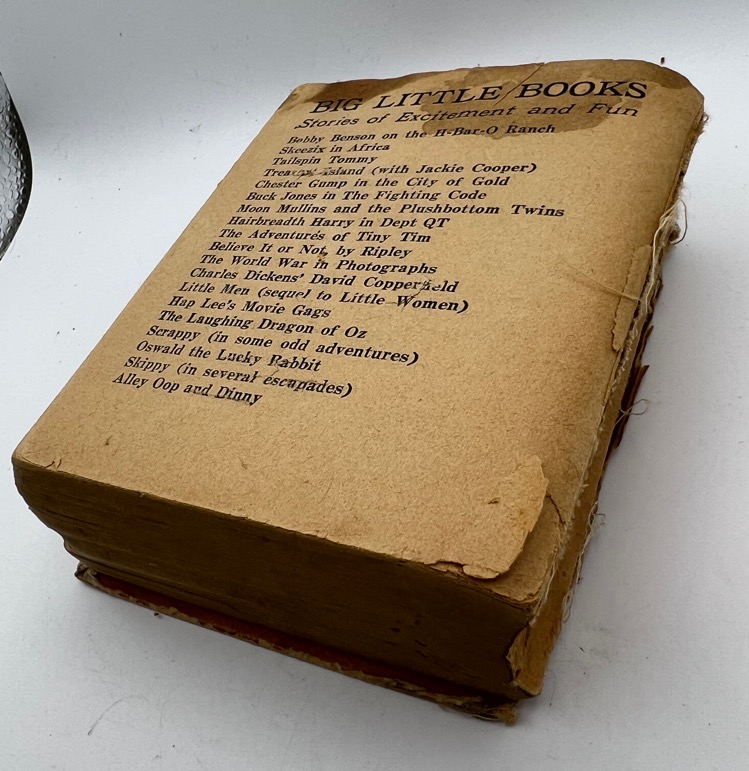 BIG LITTLE BOOKS
Stories of Excitement and Fun
Bobby Benson on the H-Bar-O Ranch
Skeezix in Africa
Tailspin Tommy
Treasure Island (with Jackie Cooper)
Chester Gump in the City of Gold
Buck Jones in The Fighting Code
Moon Mullins and the Plushbottom Twins
Hairbreadth Harry in Dept QT
The Adventures of Tiny Tim
Believe It or Not, by Ripley
The World War in Photographs
Charles Dickens' David Copperfield
Little Men (sequel to Little Women)
Hap Lee's Movie Gags
The Laughing Dragon of Oz
Scrappy (in some odd adventures)
Oswald the Lucky Rabbit
Skippy (in several escapades)
Alley Oop and Dinny